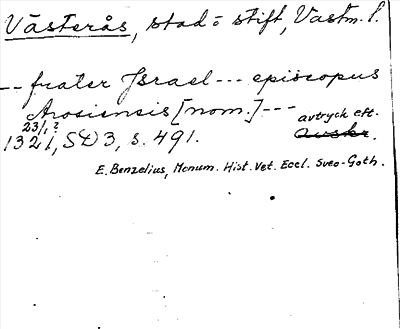 Västerås, stad o stift, Vastm. l.
-- frater Israel --- episcopus
Arosiensis [nom.] ---
23/1?
1321, SD 3, s. 491.
avtryck eft.
Avskr.
E. Benzelius, Monum. Hist. Vet. Eccl. Sveo-Goth.